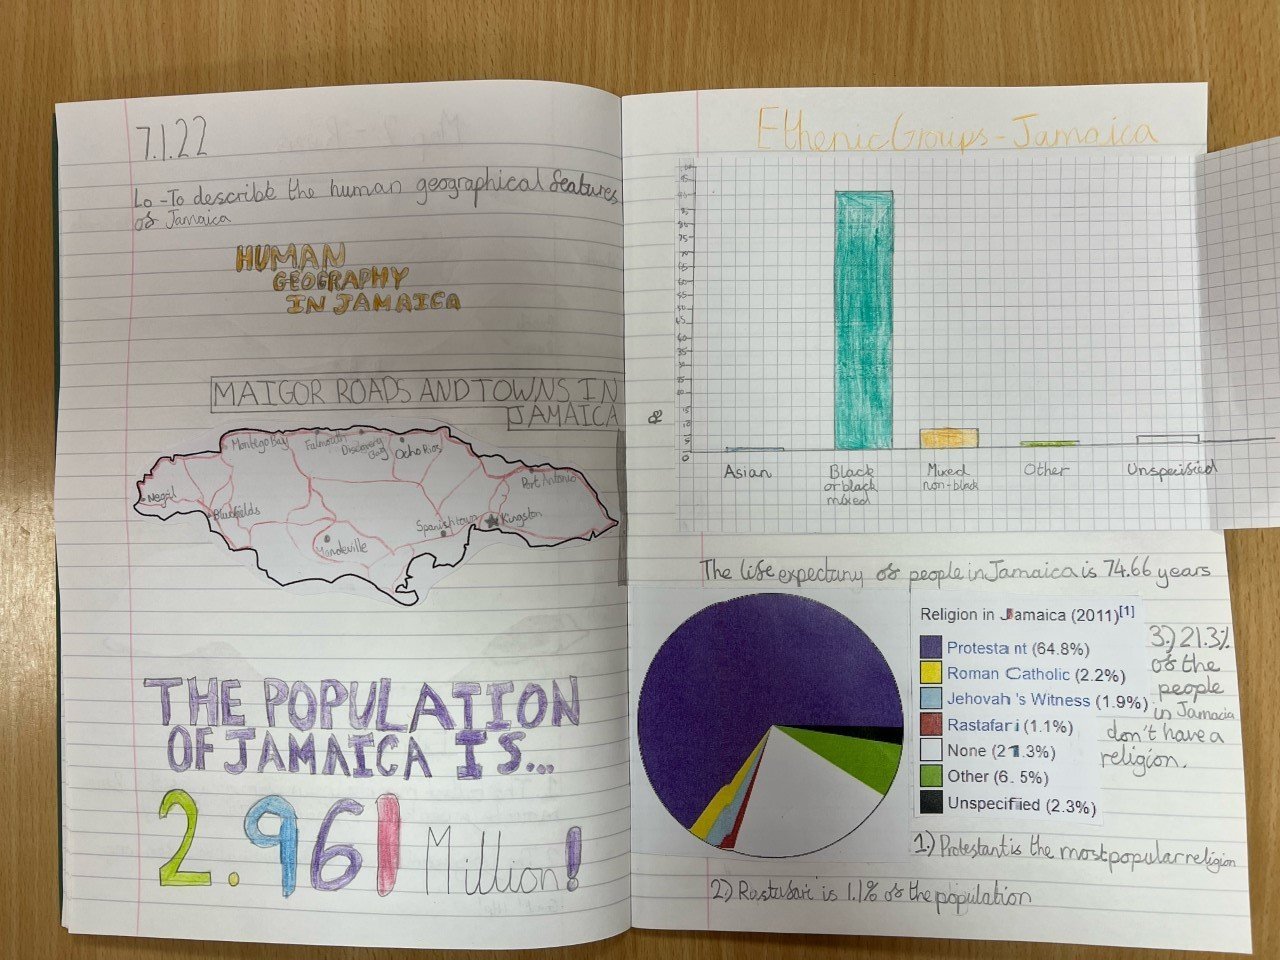 7.1.22
Lo - To describe the human geographical features
of Jamaica
HUMAN
GEOGRAPHY
IN JAMAICA
MAIGOR ROADS AND TOWNS IN
JAMAICA
Montego Bay
Falmouth
Discovery
Bay
Ocho Rios
Port Antonio
Negril
Bluefields
Spanish town
Kingston
Mandeville
THE POPULATION
OF JAMAICA IS...
2.961 Million!
Ethenic Groups - Jamaica
%
Asian
Black
or black
mixed
Mixed
non-black
Other
Unspecified
The life expectany of people in Jamaica is 74.66 years
Religion in Jamaica (2011)[1]
Protestant (64.8%)
Roman Catholic (2.2%)
Jehovah's Witness (1.9%)
Rastafari (1.1%)
None (21.3%)
Other (6.5%)
Unspecified (2.3%)
3.) 21.3%
of the
people
in Jamacia
don't have a
religion.
1.) Protestant is the most popular religion
2.) Rastafari is 1.1% of the population